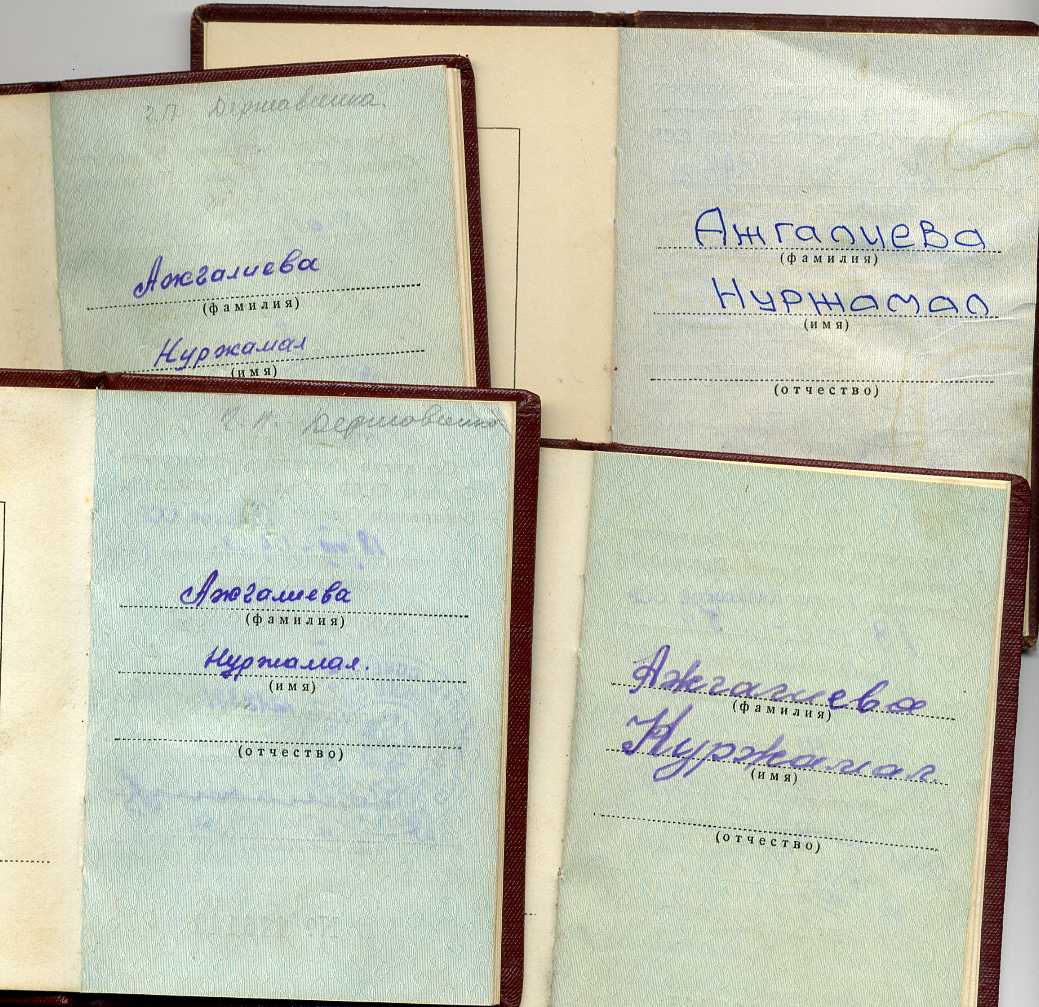 г.п. Державинка.
Ажгалиева
(фамилия)
Нуржамал
(имя)
Ажгалиева
(фамилия)
Нуржамал
(имя)
(отчество)
г.п. Державинка
Ажгалиева
(фамилия)
Нуржамал.
(имя)
(отчество)
Ажгалиева
(фамилия)
Нуржамал.
(имя)
(отчество)